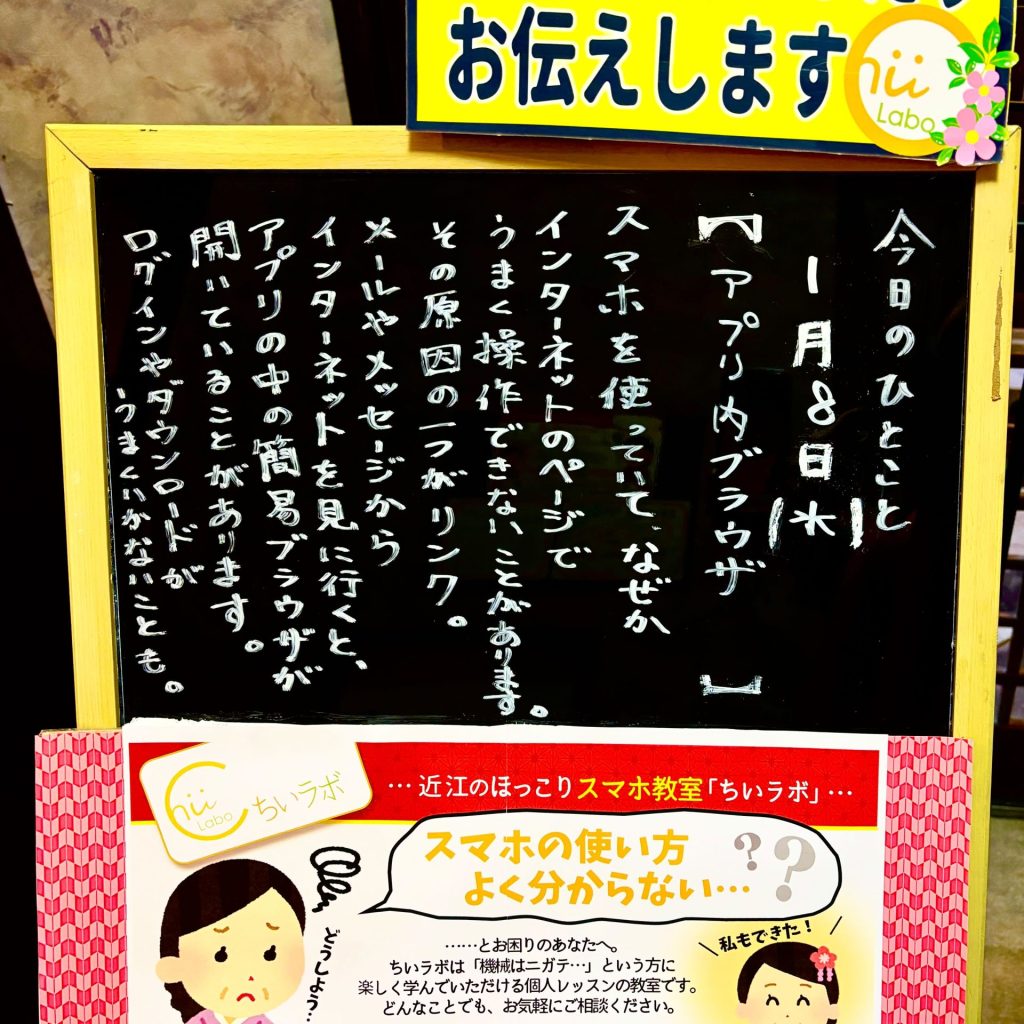 お伝えします
hii
Labo
今日のひとこと
1月8日(水)
【アプリ内ブラウザ】
スマホを使っていて、なぜか
インターネットのページで
うまく操作できないことがあります。
その原因の一つがリンク。
メールやメッセージから
インターネットを見に行くと、
アプリの中の簡易ブラウザが
開いていることがあります。
ログインやダウンロードが
うまくいかないことも。
Chii
Labo
ちいラボ
…近江のほっこりスマホ教室「ちいラボ」…
スマホの使い方
よく分からない…
??
どうしよう…
私もできた!
……とお困りのあなたへ。
ちいラボは「機械はニガテ…」という方に
楽しく学んでいただける個人レッスンの教室です。
どんなことでも、お気軽にご相談ください。